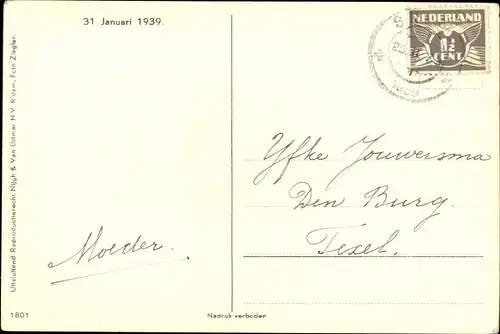 31 Januari 1939.
NEDERLAND
1½
CENT
Yfke Jouwersma
Den Burg.
Texel.
Moeder.
Uitsluitend Reproductierecht: Nijgh & Van Ditmar N.V. R'dam. Foto Ziegler.
1801
Nadruk verboden